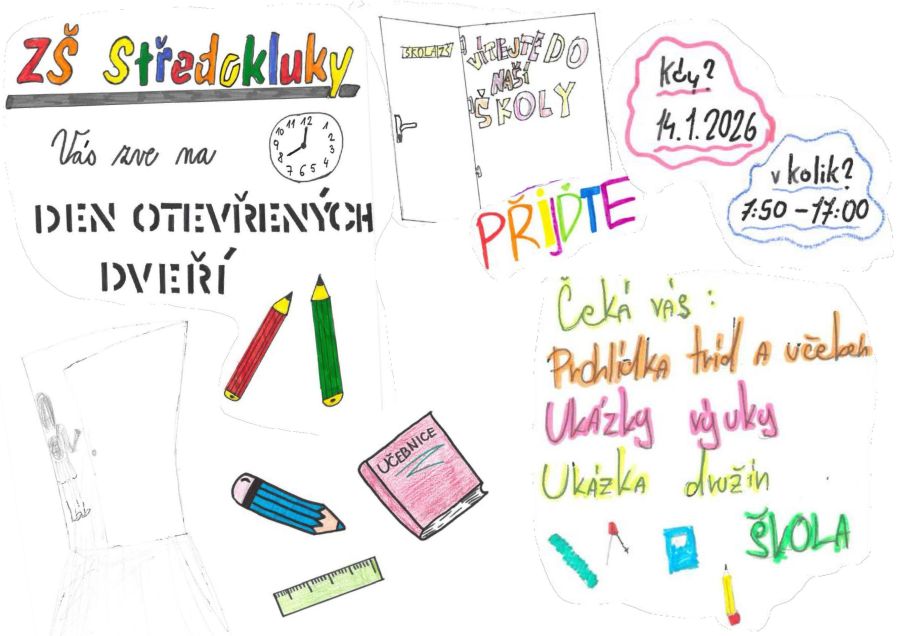 ZŠ Středokluky
Vás zve na
10 11 12 1 2 3 4 5 6 7 8 9
DEN OTEVŘENÝCH
DVEŘÍ
ŠKOLA ZŠ
VÍTEJTE DO
NAŠÍ
ŠKOLY
PŘIJĎTE
Kdy?
14.1.2026
v kolik?
7:50 – 17:00
Čeká vás:
Prohlídka tříd A učeben
UKÁZKY výuky
UKÁZKA družin
ŠKOLA
UČEBNICE